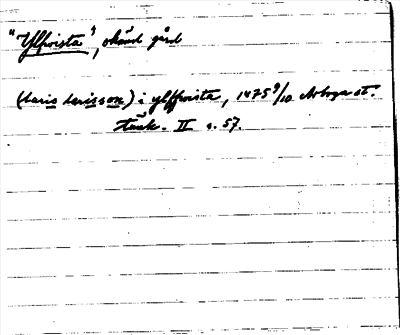 "Ylfvista", okänd gård
(Laris Larisson) i ylffvista, 1475 9/10 Arboga st.
tänk. II s. 57.